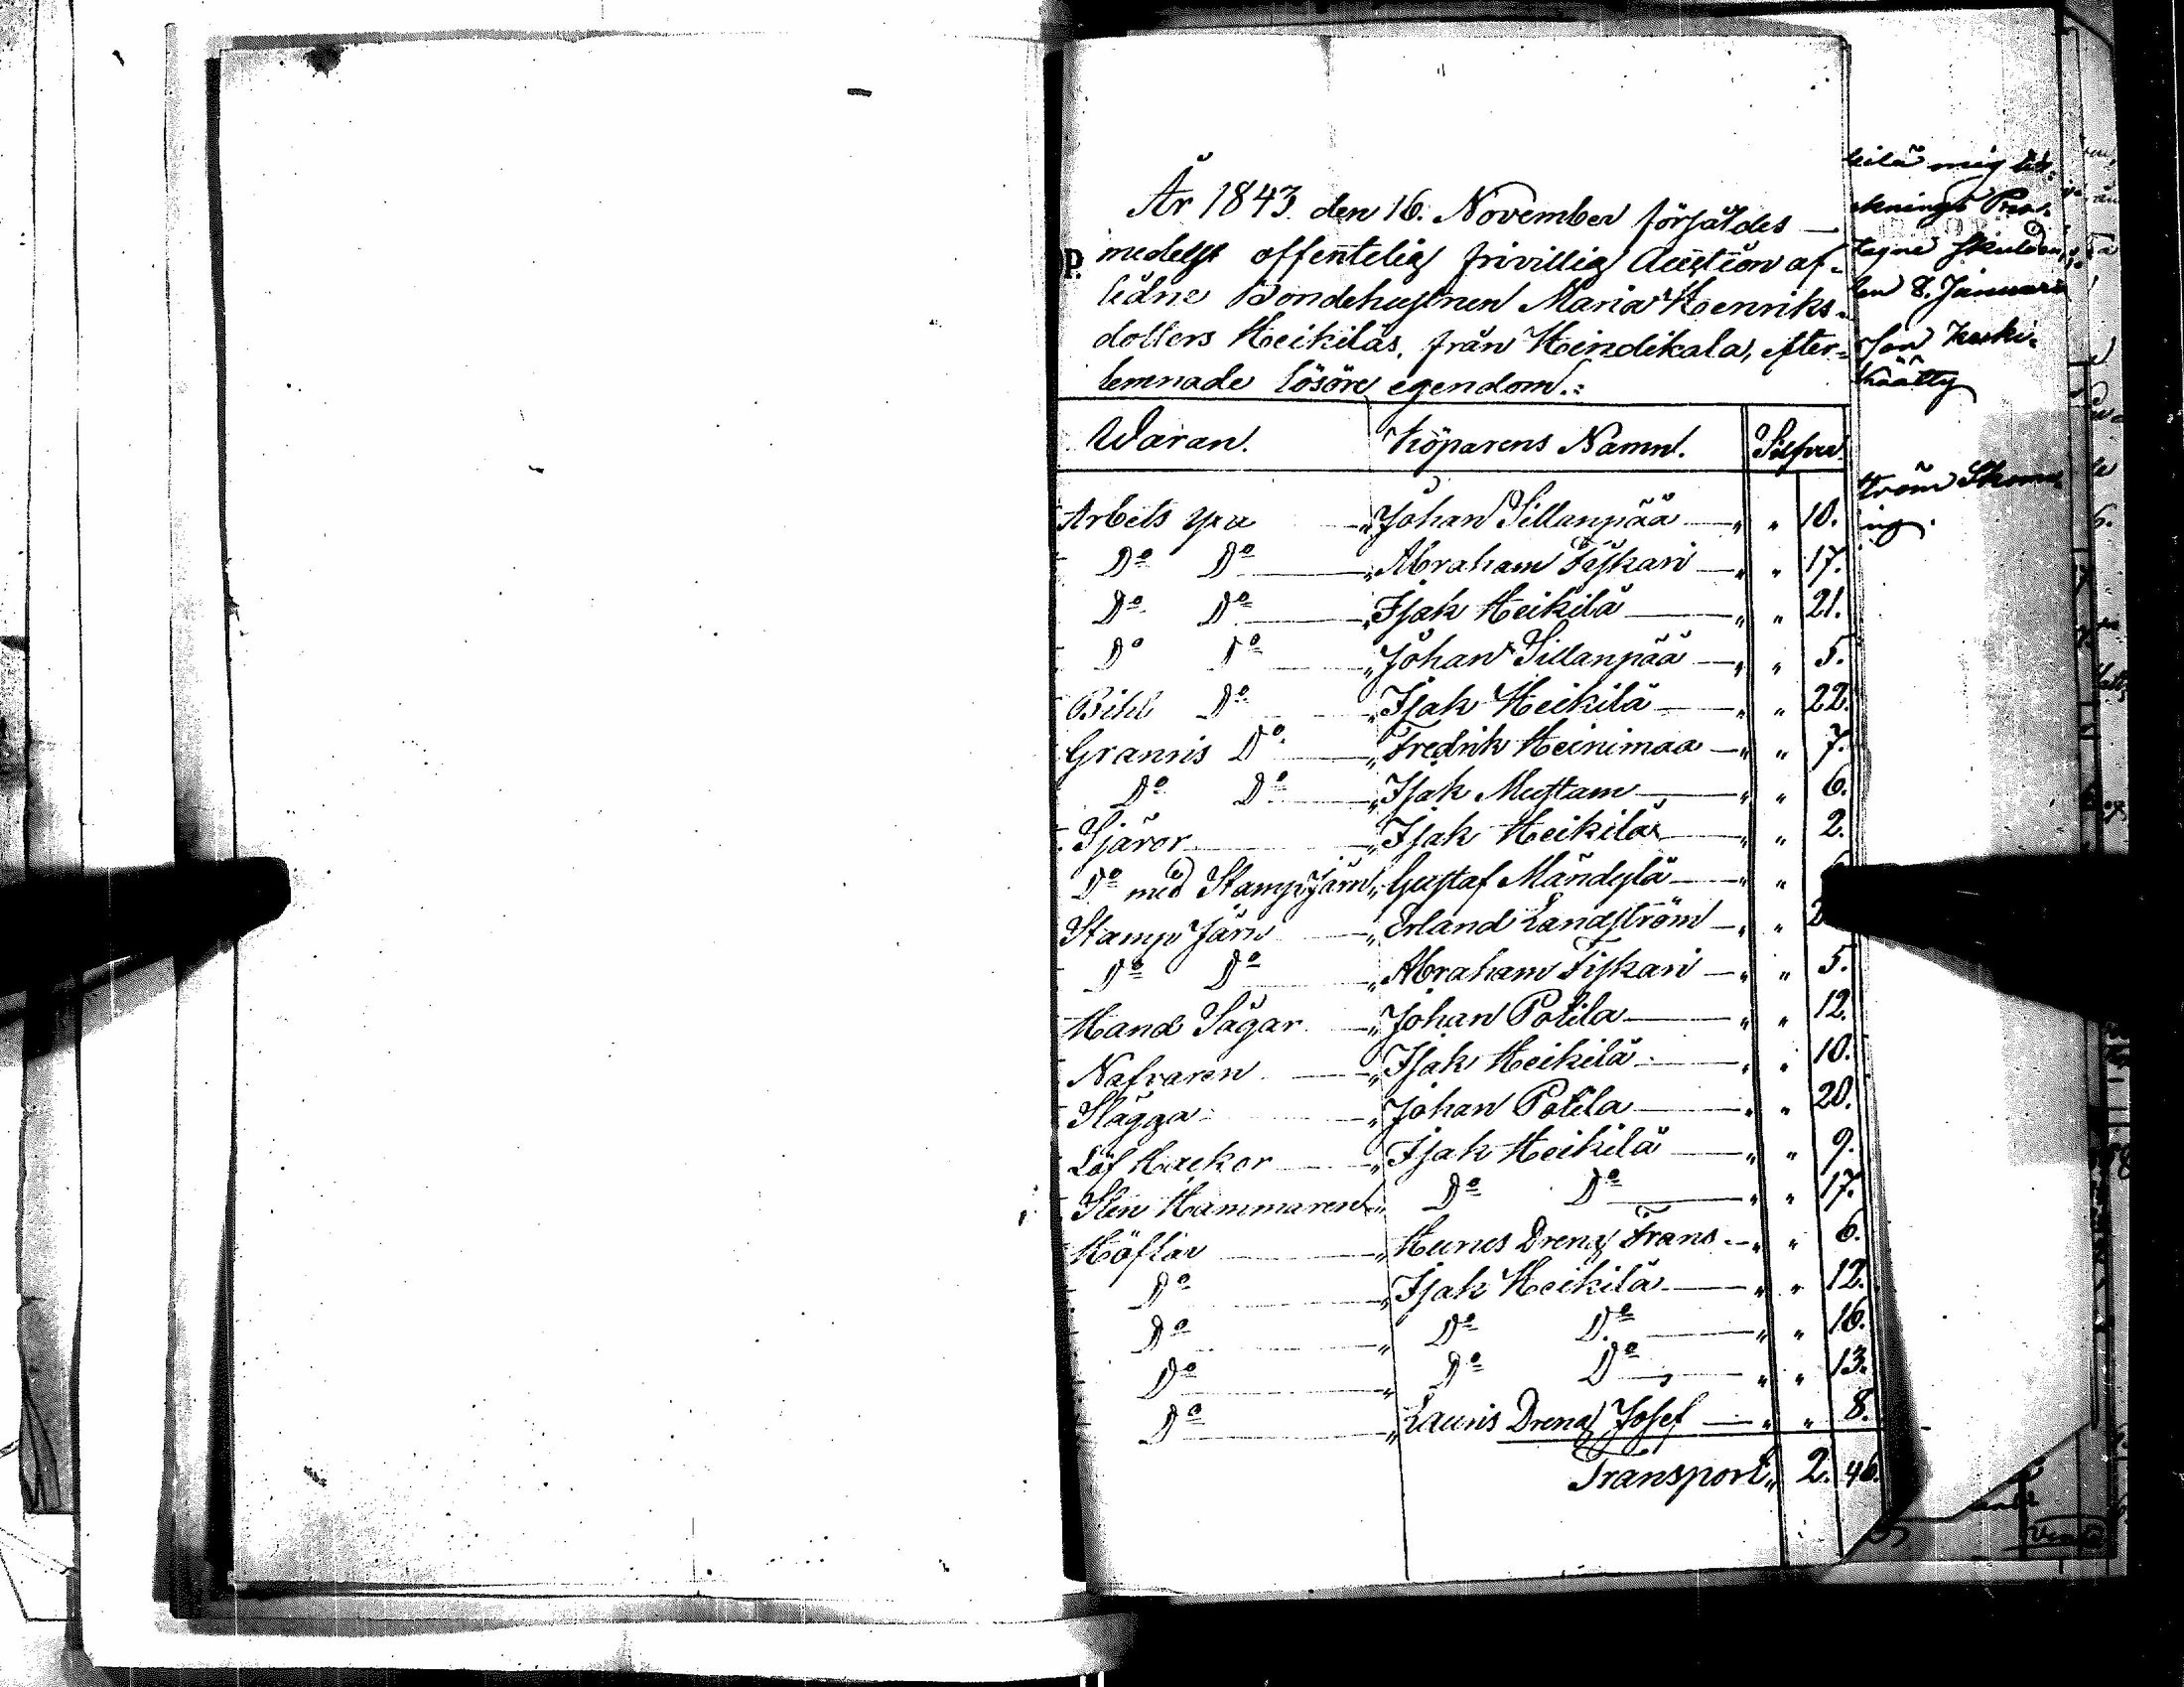 År 1843. den 16. November försåldes
medelst offentelig frivillig Auction af-
lidne Bondehustrun Maria Henriks-
dotters Heikiläs, från Heindikala, efter-
lemnade lösöre egendom.:
Waran. Köparens Namn. Silfver
Arbets yxa " Johan Sillanpää " " 10.
Do Do " Abraham Fiskari " " 17.
Do Do " Isak Heikilä " " 21.
Do Do " Johan Sillanpää " " 5.
Bihl Do " Isak Heikilä " " 22.
Granris Do " Fredrik Heinimaa " " 7.
Do Do " Isak Mustam " " 6.
Sjäror " Isak Heikilä " " 2.
Do med Stamp Järn " Gustaf Mändylä " "
Stamp Järn " Erland Landström " "
Do Do " Abraham Fiskari " " 5.
Hand Sågar " Johan Potila " " 12.
Nafvaren " Isak Heikilä " " 10.
Slägga " Johan Potila " " 20.
Löf Hackor " Isak Heikilä " " 9.
Sten Hammaren " Do Do " " 17.
Höflar " Hunus Dreng Frans " " 6.
Do " Isak Heikilä " " 12.
Do " Do Do " " 16.
Do " Do Do " " 13.
Do " Lauris Dreng Josef " " 8.
Transport " 2. 46.
kilä mig
tagne skulden
den 8. Januari
son Keski-
Määtty
ström
ing.